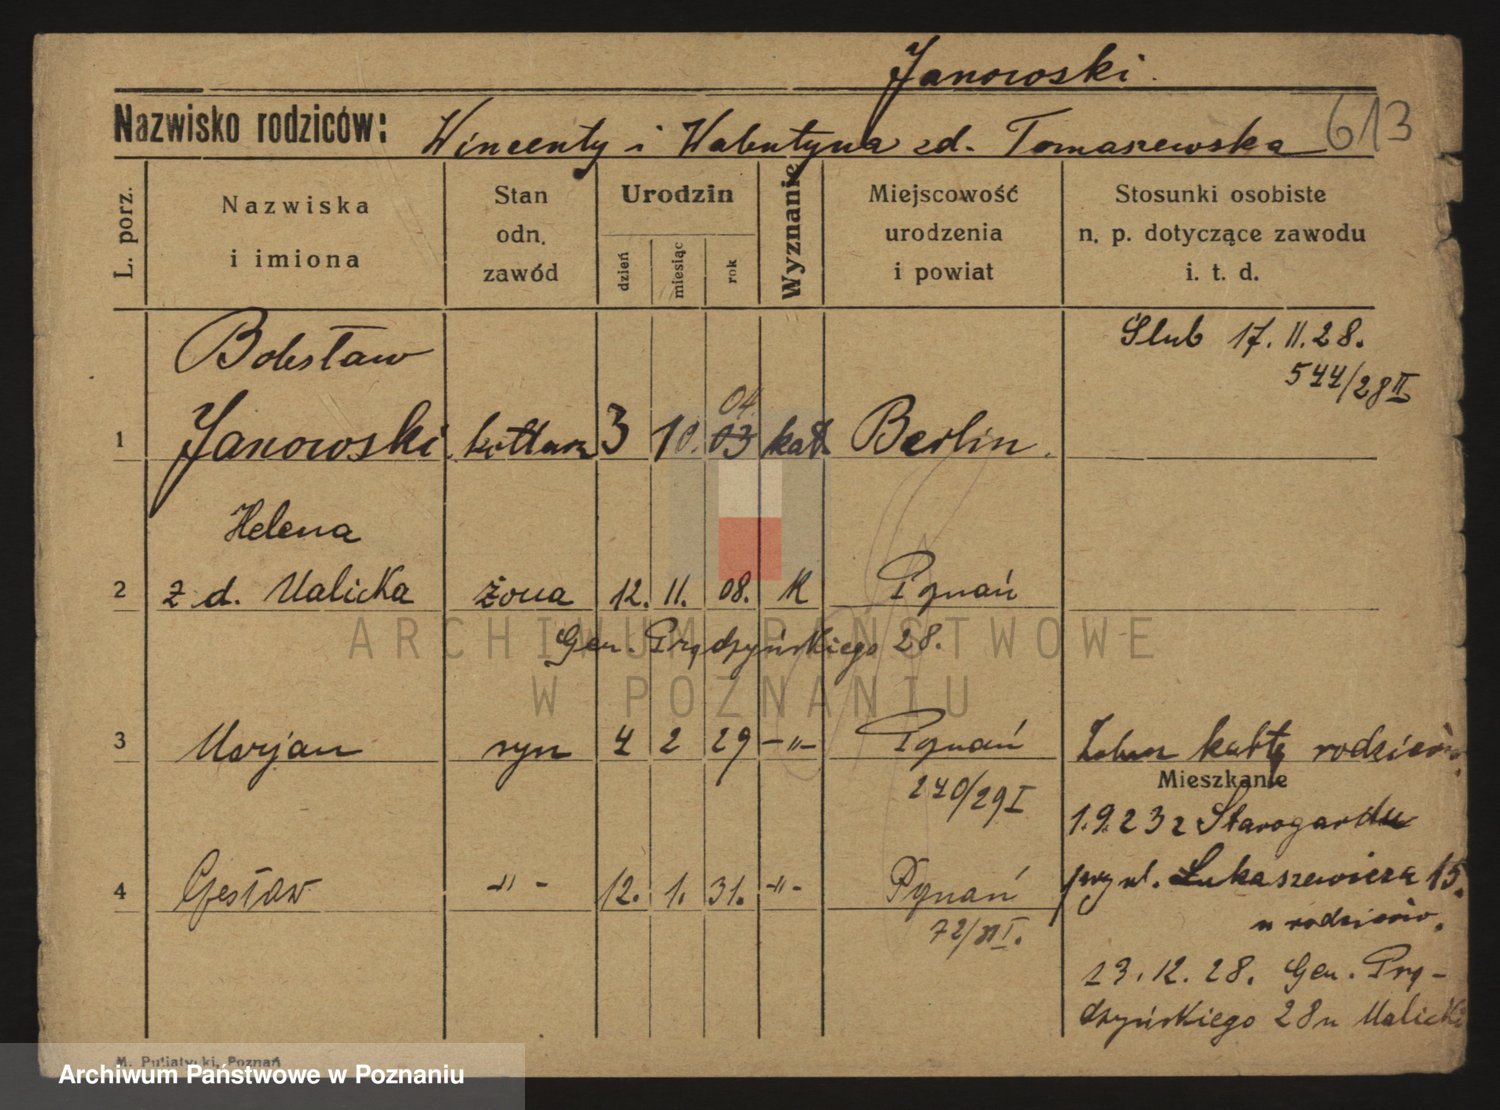 Janowski.
Nazwisko rodziców: Wincenty i Walentyna zd. Tomaszewska 613
L. porz.
Nazwiska i imiona
Stan odn. zawód
Urodzin
dzień miesiąc rok
Wyznanie
Miejscowość urodzenia i powiat
Stosunki osobiste n. p. dotyczące zawodu i. t. d.
Bolesław
Ślub 17.11.28.
544/28 II
04.
1 Janowski kotlarz 3 10. 03 kat. Berlin.
Helena
2 z d. Malicka żona 12. 11. 08. K Poznań
Gen. Prądzyńskiego 28.
3 Marjan syn 4 2 29 -"- Poznań kartę rodziców
240/29 I
Mieszkanie
1.9.23 z Starogardu
4 Czesław -"- 12. 1. 31. -"- Poznań
przy ul. Łukaszewicza 15.
72/31 I.
u rodziców.
13.12.28. Gen. Prą-
dzyńskiego 28 u Malicki
M. Putiatycki, Poznań
ARCHIWUM PAŃSTWOWE
W POZNANIU
Archiwum Państwowe w Poznaniu